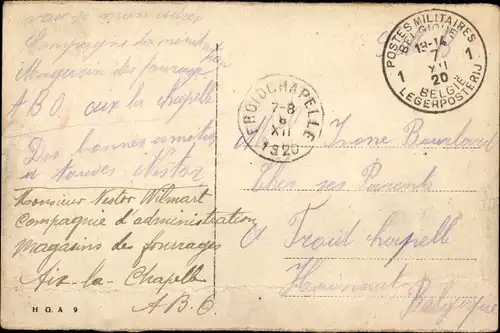 Compagnie
Magasin des fourrages
A B O aux la chapelle
Des bonnes amitiés
a toutes Nestor
Monsieur Nestor Wilmart
Compagnie d'administration
Magasins des fourrages
Aix-la-Chapelle
A.B.O.
H G A 9
FROIDCHAPELLE
7-8
8
XII
1920
POSTES MILITAIRES
BELGIQUE
13-14
7
XII
20
1 1
BELGIË
LEGERPOSTERIJ
Chez ses Parents
a Froid chapelle
Hainaut
Belgique